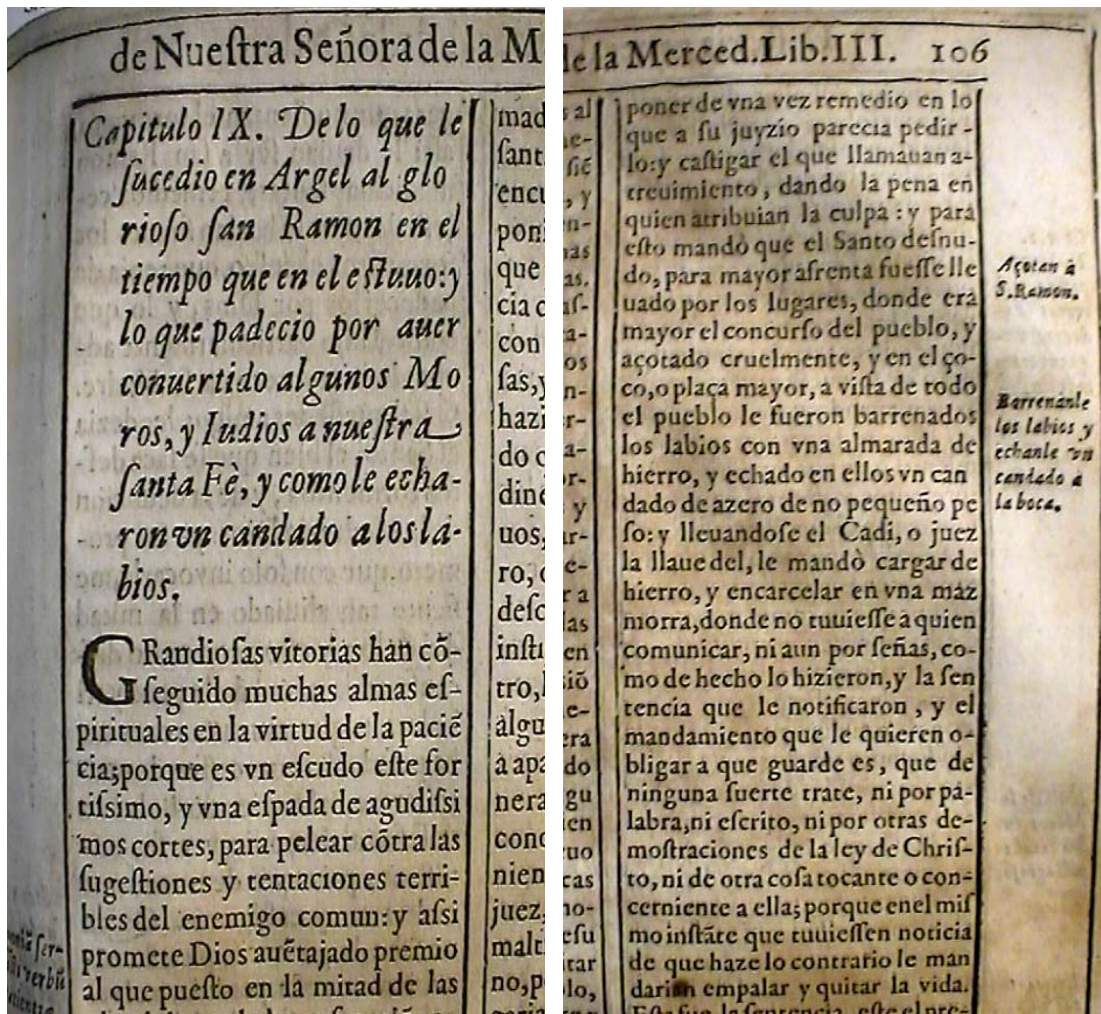 de Nueſtra Señora de la M
Capitulo IX. De lo que le
ſucedio en Argel al glo
rioſo ſan Ramon en el
tiempo que en el eſtuuo:y
lo que padecio por auer
conuertido algunos Mo
ros, y Iudios a nueſtra
ſanta Fè, y como le echa-
ron vn candado a los la-
bios.
GRandioſas vitorias han cõ-
ſeguido muchas almas eſ-
pirituales en la virtud de la paciẽ
cia;porque es vn eſcudo eſte for
tiſsimo, y vna eſpada de agudiſsi
mos cortes, para pelear cõtra las
ſugeſtiones y tentaciones terri-
bles del enemigo comun:y aſsi
promete Dios auẽtajado premio
al que pueſto en la mitad de las
mad
ſant
encu
poni
que
cia c
con
ſas,y
hazi
do c
dine
uos,
ro,
deſc
inſti
tro,
algu
à apa
nera
conc
nien
juez,
malt
no,p
de la Merced.Lib.III. 106
al
ne-
ſiẽ
, y
n-
nas
as.
aſ-
a-
os
n-
r-
a-
or-
y
ar-
e-
r a
las
en
ſiõ
e-
era
do
gu
ien
uo
cas
no-
eſu
tar
lo,
poner de vna vez remedio en lo
que a ſu juyzio parecia pedir-
lo:y caſtigar el que llamauan a-
treuimiento, dando la pena en
quien atribuian la culpa : y para
eſto mandò que el Santo deſnu-
do, para mayor afrenta fueſſe lle
uado por los lugares, donde era
mayor el concurſo del pueblo, y
açotado cruelmente, y en el ço-
co,o plaça mayor, a viſta de todo
el pueblo le fueron barrenados
los labios con vna almarada de
hierro, y echado en ellos vn can
dado de azero de no pequeño pe
ſo: y lleuandoſe el Cadi, o juez
la llaue del, le mandò cargar de
hierro, y encarcelar en vna maz
morra,donde no tuuieſſe a quien
comunicar, ni aun por ſeñas, co-
mo de hecho lo hizieron,y la ſen
tencia que le notificaron , y el
mandamiento que le quieren o-
bligar a que guarde es, que de
ninguna ſuerte trate, ni por pa-
labra,ni eſcrito, ni por otras de-
moſtraciones de la ley de Chriſ-
to, ni de otra coſa tocante o con-
cerniente a ella; porque en el miſ
mo inſtãte que tuuieſſen noticia
de que haze lo contrario le man
darian empalar y quitar la vida.
Eſta fue la ſentencia, eſte el pre-
Açotan à
S.Ramon.
Barrenanle
los labios y
echanle vn
candado a
la boca.